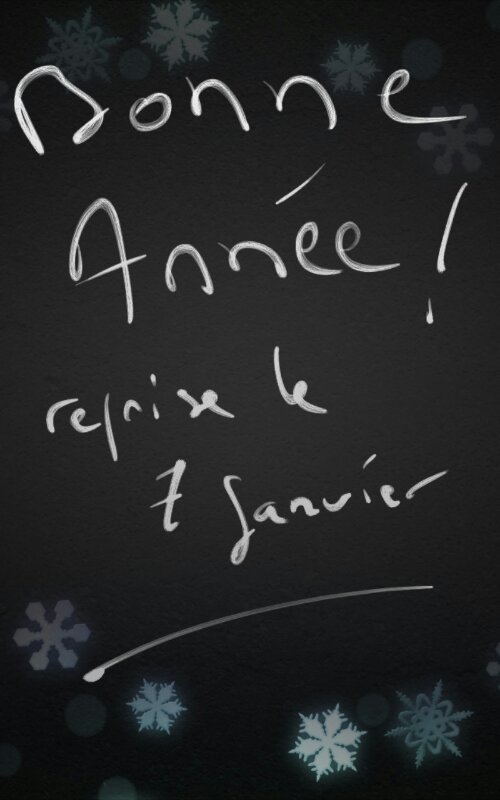 Bonne
Année !
reprise le
7 Janvier